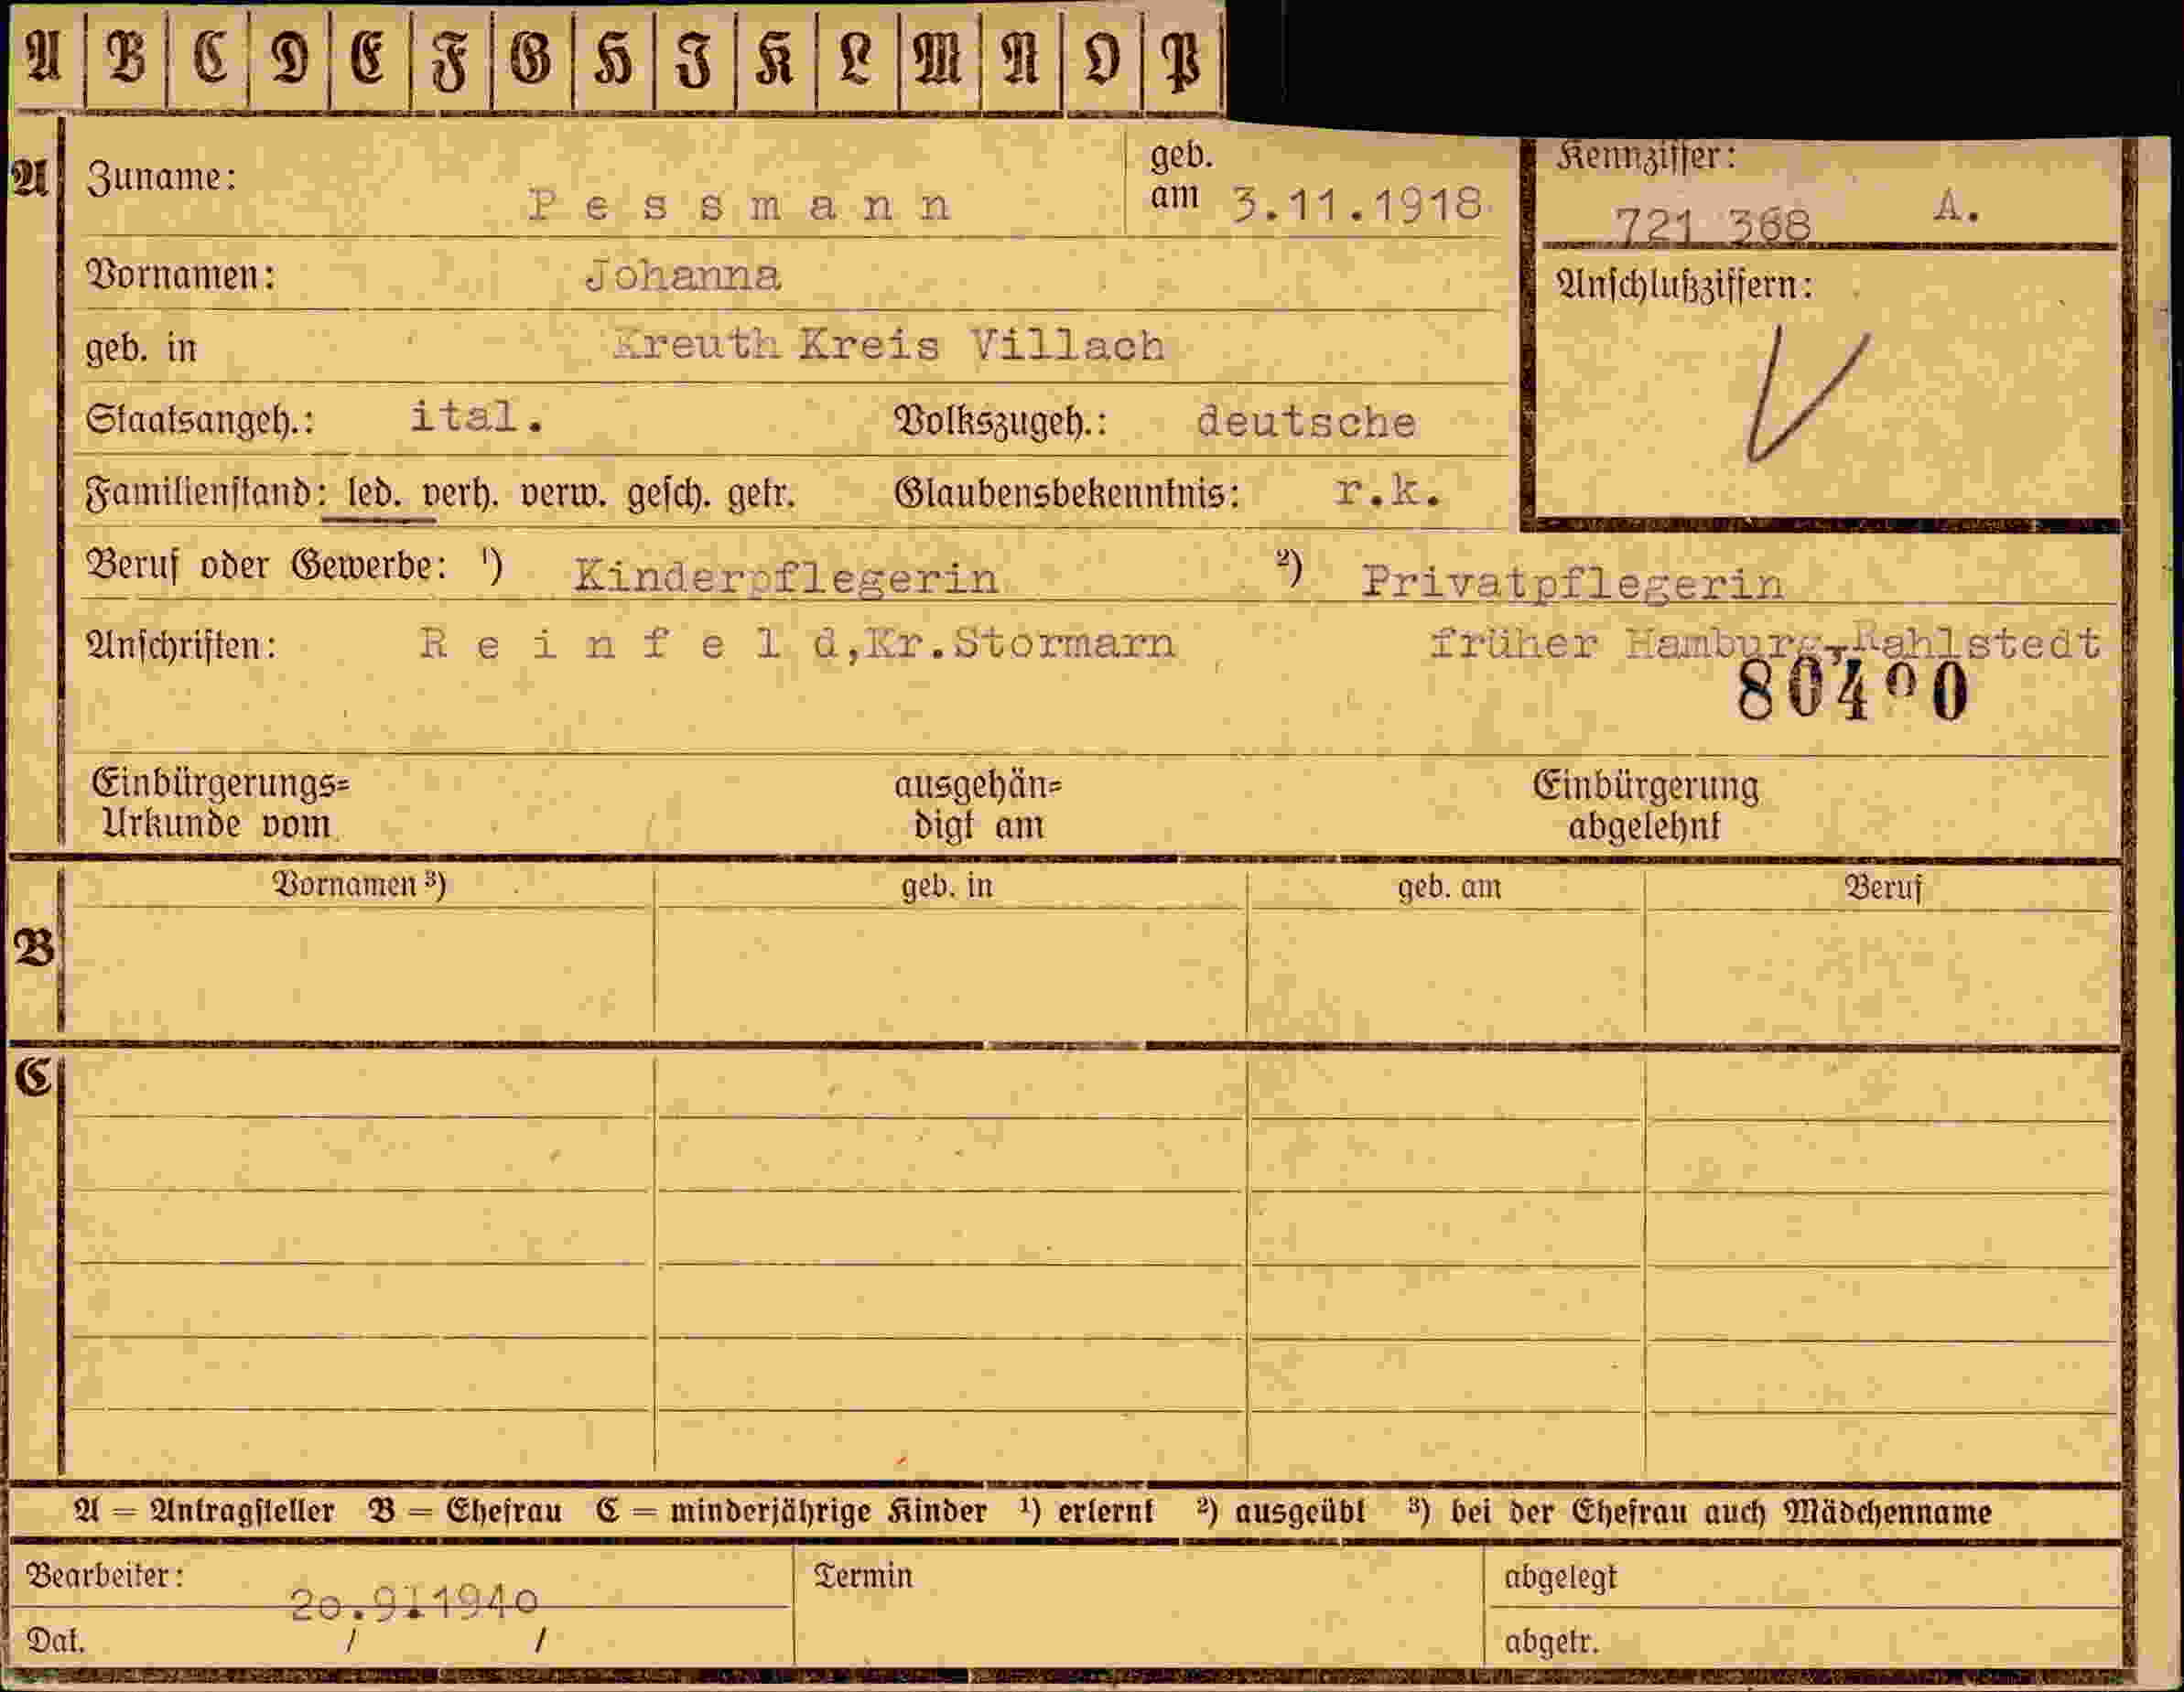 A B C D E F G H I K L M N O P
A Zuname: Pessmann geb. am 3.11.1918 Kennziffer: 721 368 A.
Vornamen: Johanna Anschlußziffern:
geb. in Kreuth Kreis Villach
Staatsangeh.: ital. Volkszugeh.: deutsche
Familienstand: led. verh. verw. gesch. getr. Glaubensbekenntnis: r.k.
Beruf oder Gewerbe: ¹) Kinderpflegerin ²) Privatpflegerin
Anschriften: Reinfeld,Kr.Stormarn früher Hamburg-Rahlstedt
80400
Einbürgerungs= ausgehän= Einbürgerung
Urkunde vom digt am abgelehnt
B Vornamen ³) geb. in geb. am Beruf
C
A = Antragsteller B = Ehefrau C = minderjährige Kinder ¹) erlernt ²) ausgeübt ³) bei der Ehefrau auch Mädchenname
Bearbeiter: Termin abgelegt
20.9.1940
Dat. / / abgetr.